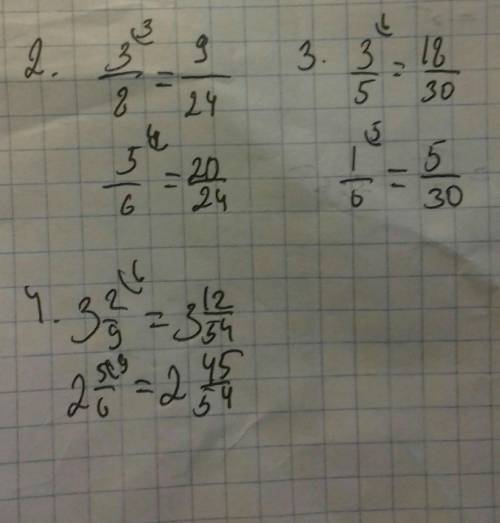 2. 3/8 ⁽³ = 9/24
5/6 ⁽⁴ = 20/24
3. 3/5 ⁽⁶ = 18/30
1/6 ⁽⁵ = 5/30
4. 3 2/9 ⁽⁶ = 3 12/54
2 5/6 ⁽⁹ = 2 45/54